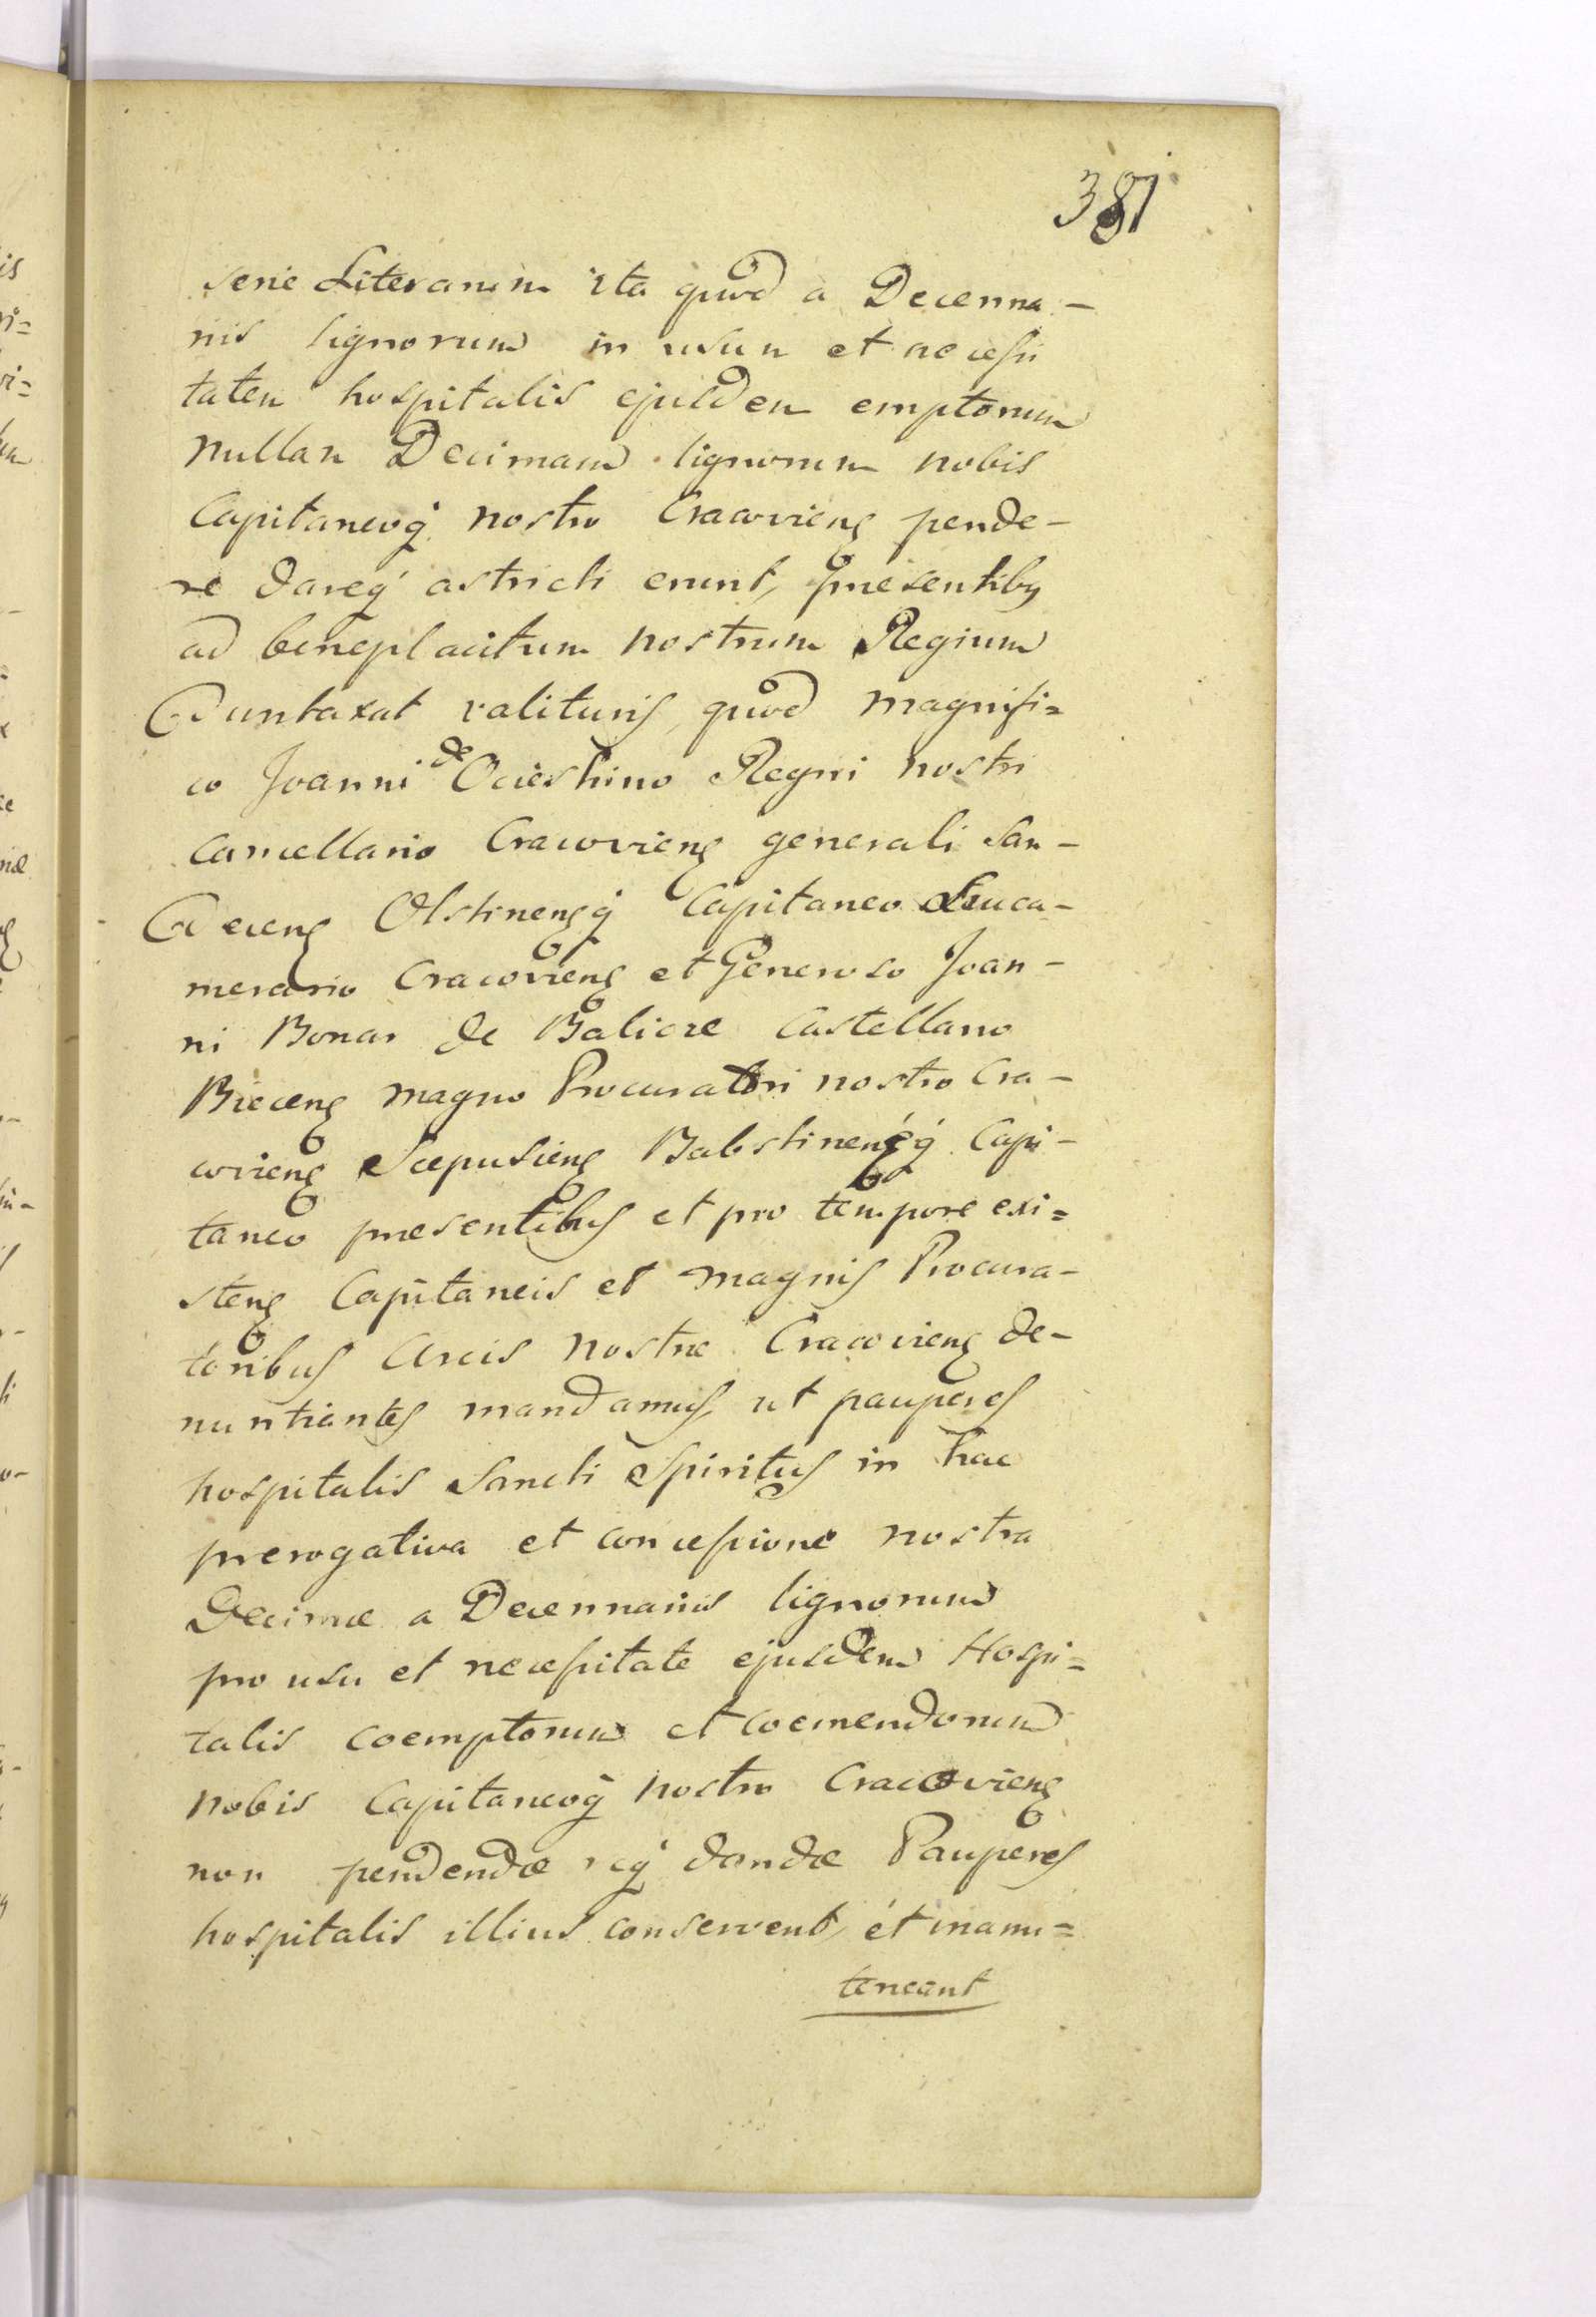 381
serie Literarum ita quod à Decenna-
riis lignorum in usum et necessi
tatem hospitalis ejusdem emptorum
nullam Decimam lignorum nobis
Capitaneoq́ nostro Cracovienẜ pende-
re dareq́ astricti erunt, presentibꝰ
ad beneplacitum nostrum Regium
duntaxat valituris, quod magnifi=
co Joanni de Ocieskino Regni nostri
Cancellario Cracovienẜ generali San-
decenẜ Olstinenẜq́ Capitaneo Succa-
merario Cracovienẜ et Generoso Joan-
ni Bonar de Balicze Castellano
Biecenẜ magno Procuratori nostro Cra-
covienẜ Scepusienẜ Rabstinenẜq́ Capi-
taneo presentibus et pro tempore exi=
stenẜ Capitaneis et magnis Procura-
toribus Arcis nostre Cracovienẜ de-
nuntiantes mandamus, ut pauperes
hospitalis Sancti Spiritus in hac
prerogativa et concessione nostra
Decimæ a Decennariis lignorum
pro usu et necessitate ejusdem Hospi=
talis coemptorum et coemendorum
nobis Capitaneoq́ nostro Cracovienẜ
non pendendæ neq́ dandæ Pauperes
hospitalis illius conservent, et manu=
teneant